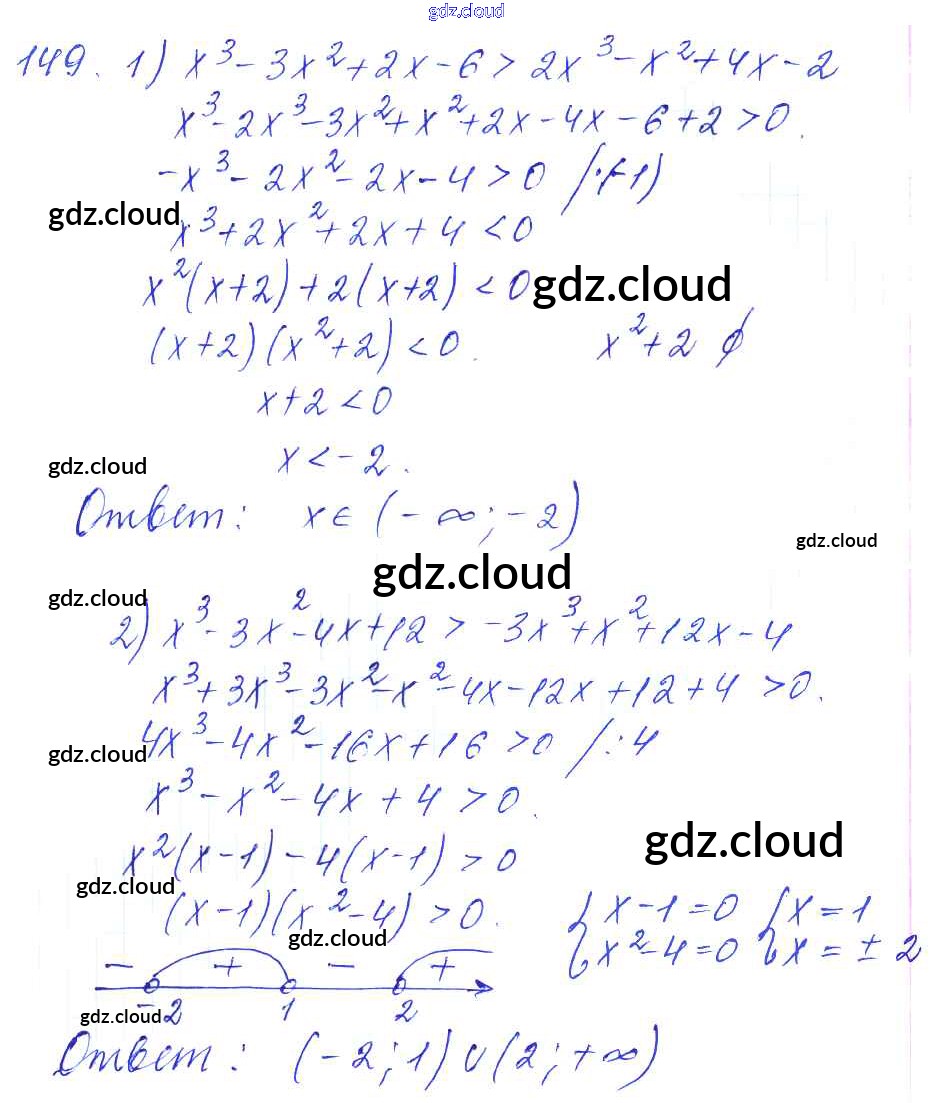 gdz.cloud
149. 1) x³ - 3x² + 2x - 6 > 2x³ - x² + 4x - 2
x³ - 2x³ - 3x² + x² + 2x - 4x - 6 + 2 > 0.
-x³ - 2x² - 2x - 4 > 0 /·(-1)
gdz.cloud
x³ + 2x² + 2x + 4 < 0
x²(x+2) + 2(x+2) < 0 gdz.cloud
(x+2)(x²+2) < 0. x² + 2 ∅
x + 2 < 0
gdz.cloud x < -2.
Ответ: x ∈ (-∞; -2)
gdz.cloud
gdz.cloud
gdz.cloud
2) x³ - 3x² - 4x + 12 > -3x³ + x² + 12x - 4
x³ + 3x³ - 3x² - x² - 4x - 12x + 12 + 4 > 0.
4x³ - 4x² - 16x + 16 > 0 /:4
gdz.cloud
x³ - x² - 4x + 4 > 0.
gdz.cloud
x²(x-1) - 4(x-1) > 0
gdz.cloud
(x-1)(x²-4) > 0. { x - 1 = 0 { x = 1
gdz.cloud { x² - 4 = 0 { x = ± 2
- + - +
gdz.cloud -2 1 2
Ответ: (-2; 1) ∪ (2; +∞)